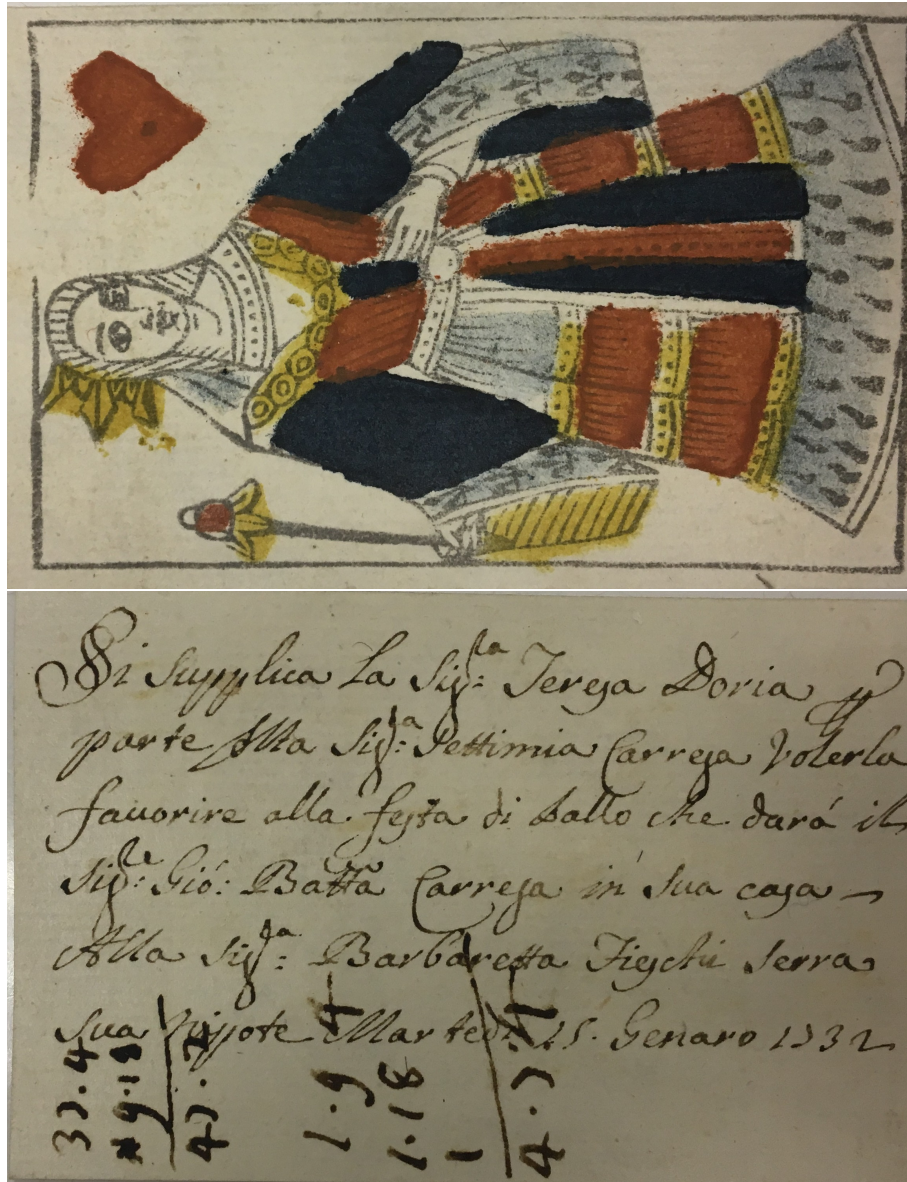 Si supplica La Sig:ra Teresa Doria p
parte Alla Sig:ra Settimia Carrega Volerla
fauorire alla festa di ballo che dará il
Sig:re Gió: Batta Carrega in sua casa
Alla Sig:ra Barbaretta Fieschi Serra
sua Nipote Martedi 15. Genaro 1732
37.4
9.18
47.2
1.9.4
1.18
1
4.7.4